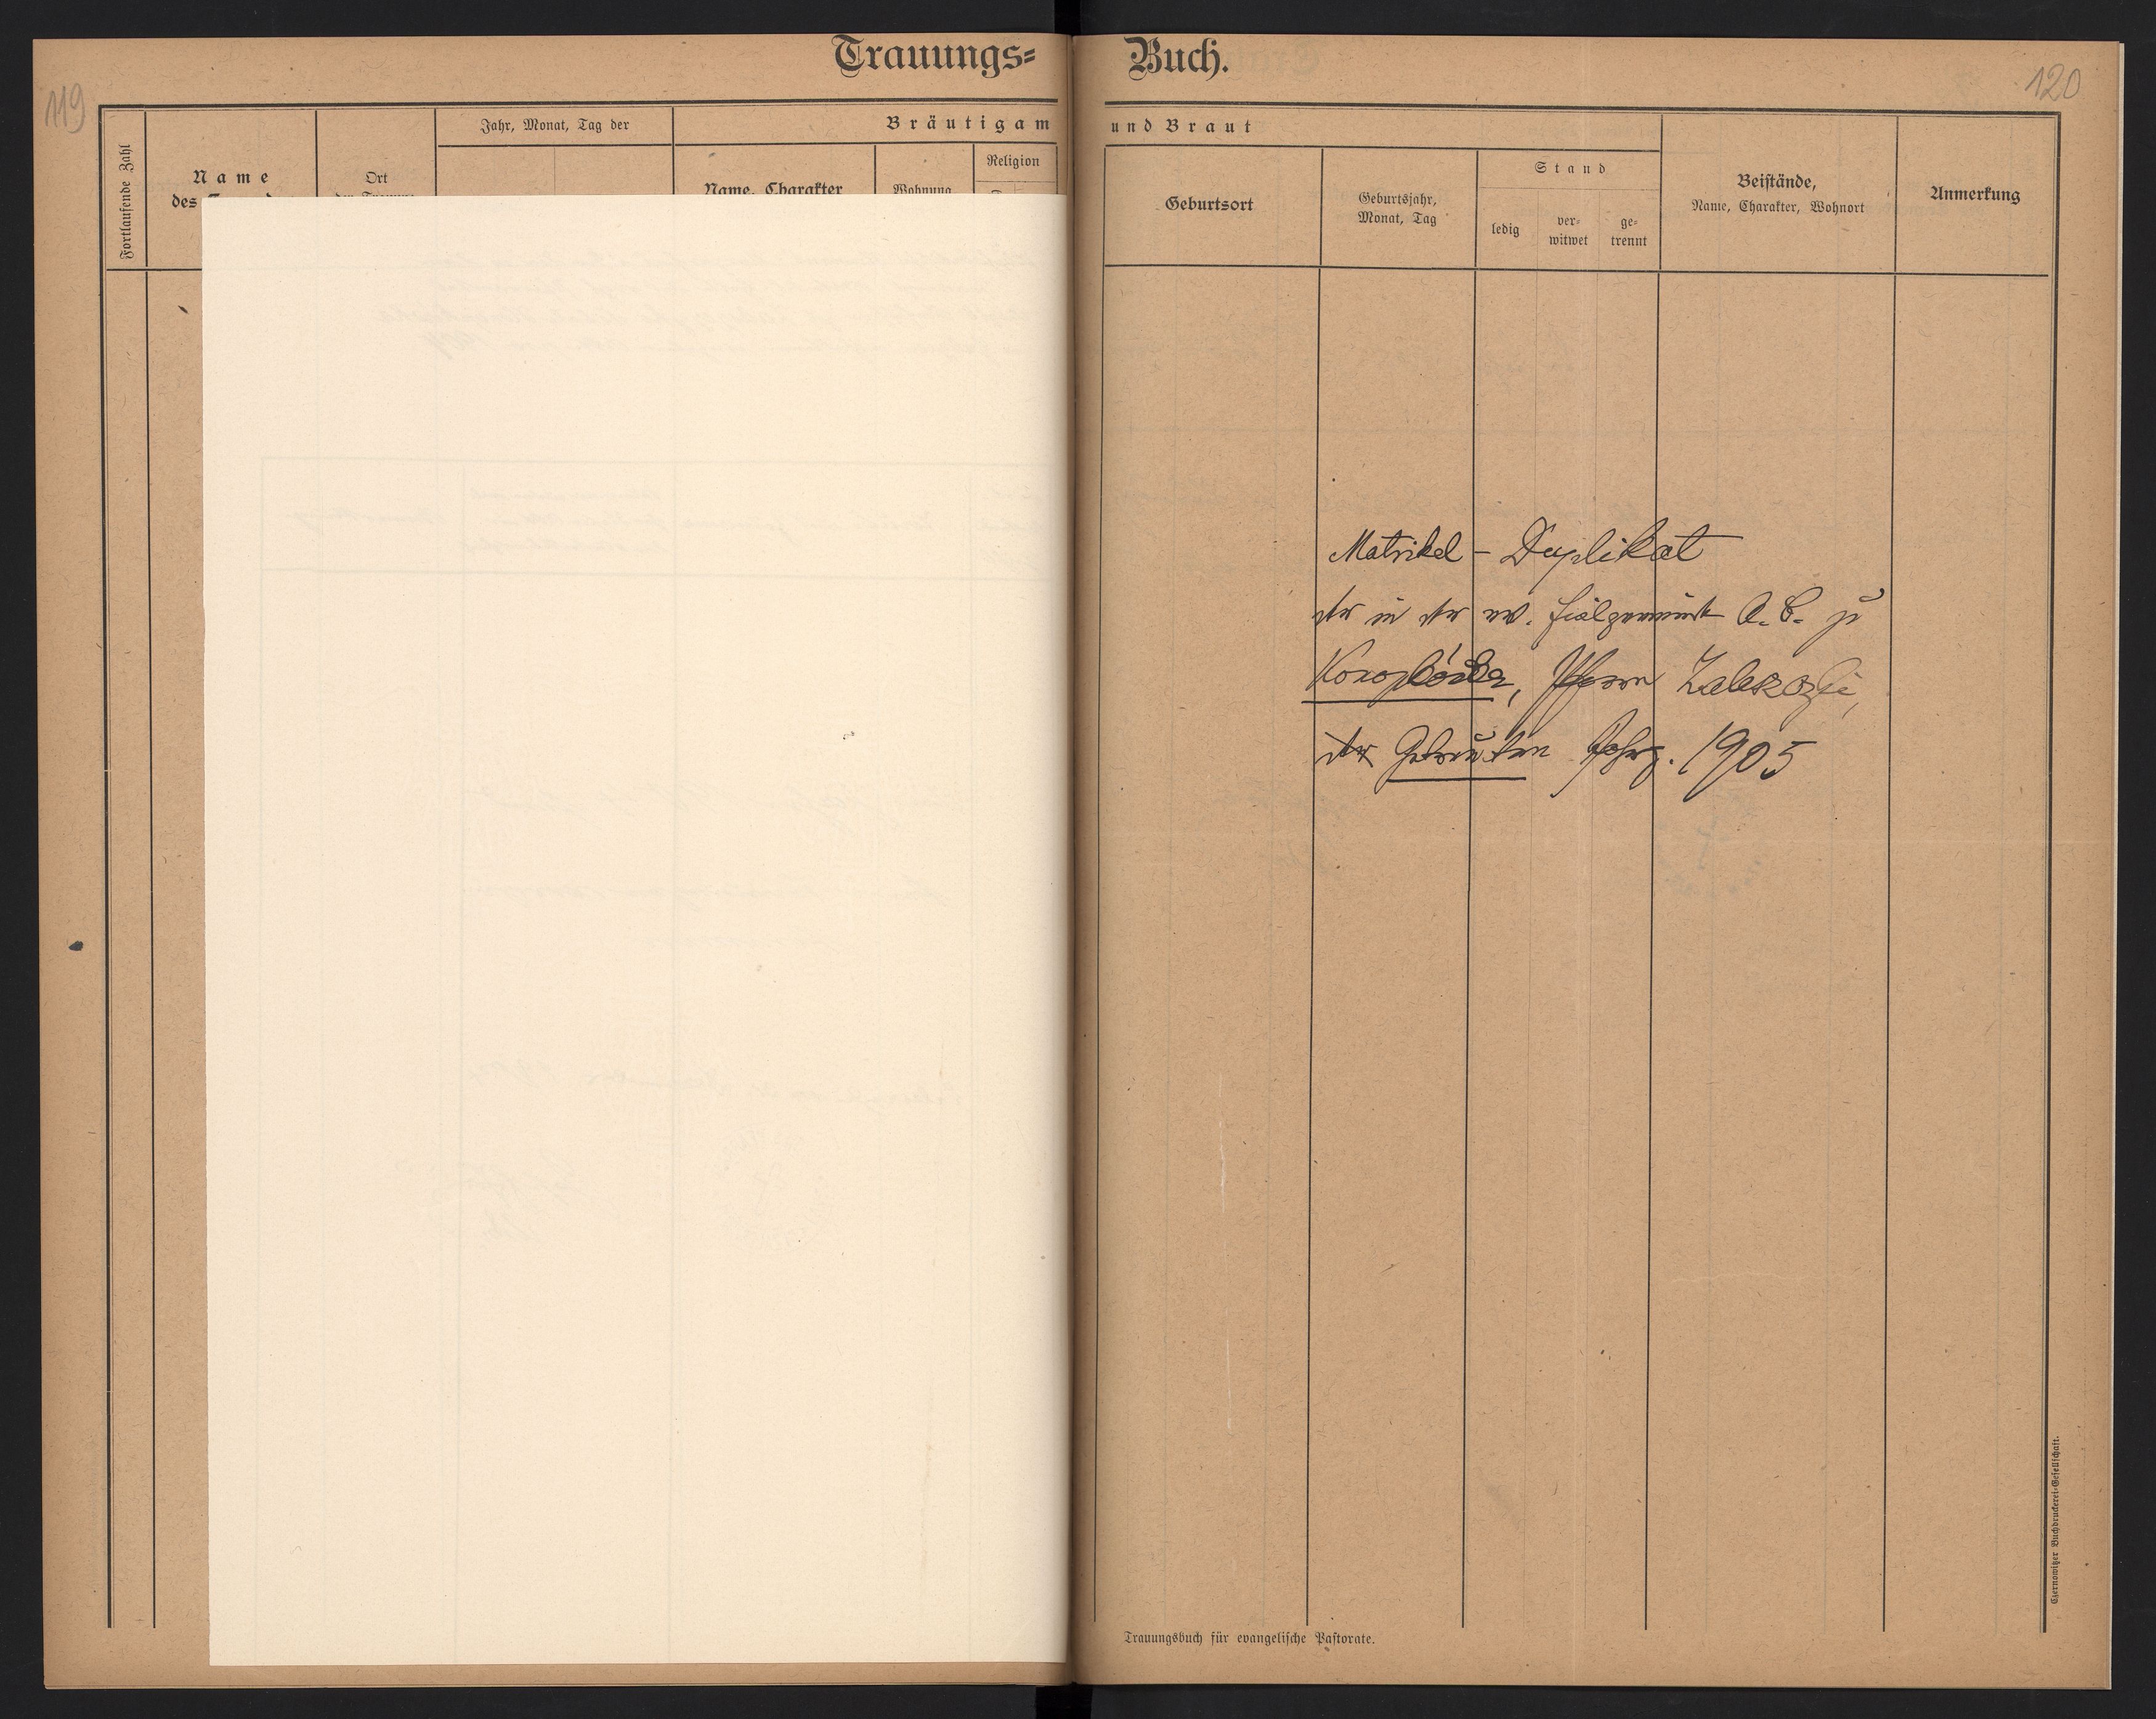 Trauungs=
119
Fortlaufende Zahl
Name
des
Ort
Jahr, Monat, Tag der
Bräutigam
Name, Charakter
Wohnung
Religion
Buch.
120
und Braut
Geburtsort
Geburtsjahr,
Monat, Tag
Stand
ledig
ver-
witwet
ge-
trennt
Beistände,
Name, Charakter, Wohnort
Anmerkung
Matrikel - Duplikat
der in der ev. Filialgemeinde A. B. zu
Pfarre Zaleszczyki,
der Getrauten Jahrg. 1905
Czernowitzer Buchdruckerei-Gesellschaft.
Trauungsbuch für evangelische Pastorate.